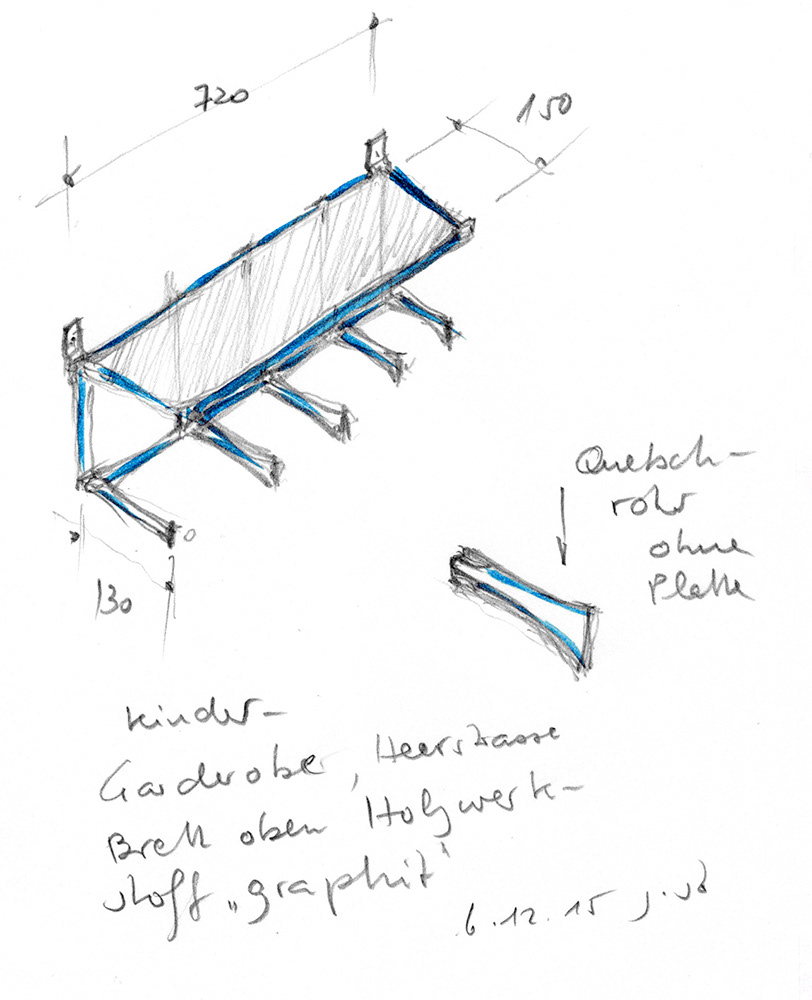 720
150
Quetsch-
rohr
ohne
Platte
130
Kinder-
Garderobe, Heerstrasse
Brett oben Holzwerk-
stoff „graphit“
6.12.15